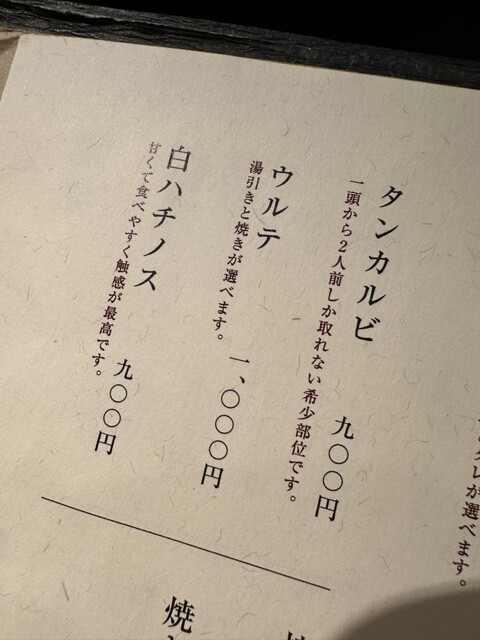 りタレが選べます。
タンカルビ
一頭から2人前しか取れない希少部位です。
九〇〇円
ウルテ
湯引きと焼きが選べます。
一、〇〇〇円
白ハチノス
甘くて食べやすく触感が最高です。
九〇〇円
焼